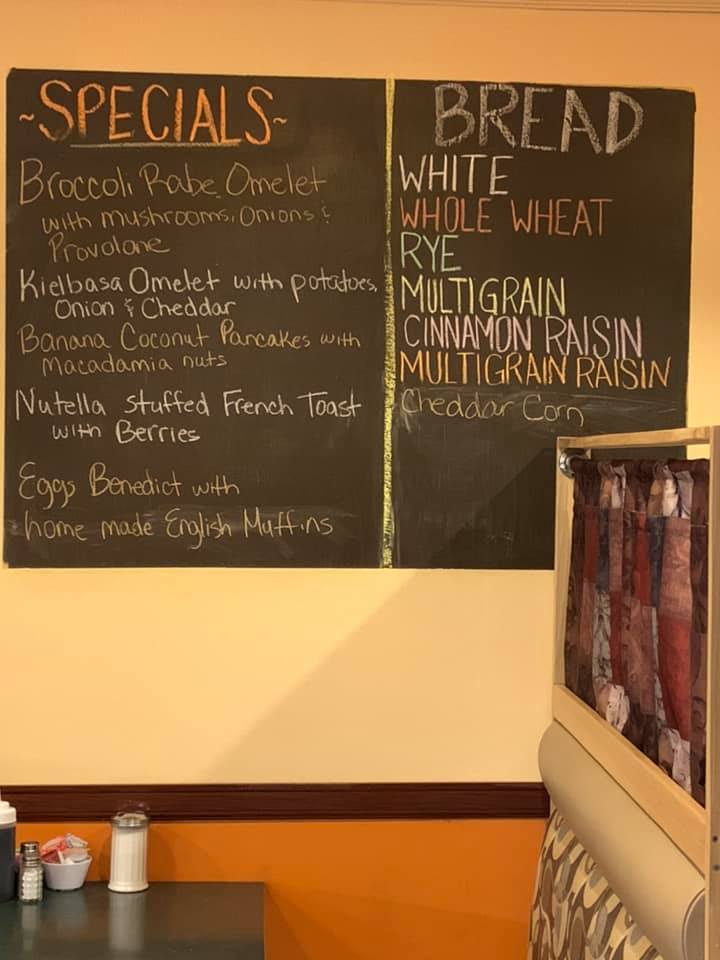 ~SPECIALS~
Broccoli Rabe Omelet
with mushrooms, Onions &
Provolone
Kielbasa Omelet with potatoes,
Onion & Cheddar
Banana Coconut Pancakes with
Macadamia nuts
Nutella stuffed French Toast
with Berries
Eggs Benedict with
home made English Muffins
BREAD
WHITE
WHOLE WHEAT
RYE
MULTIGRAIN
CINNAMON RAISIN
MULTIGRAIN RAISIN
Cheddar Corn